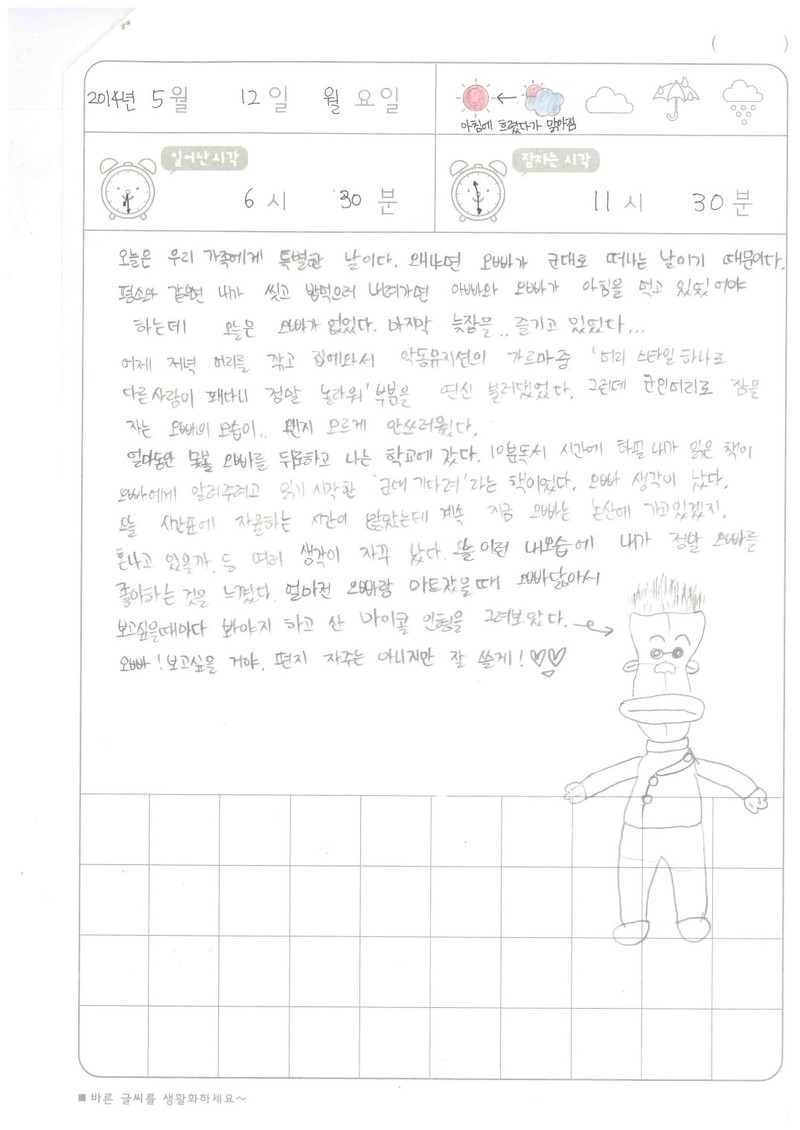 ( )
2014년 5월 12일 월요일
아침에 흐렸다가 맑아짐
일어난 시각
6시 30분
잠자는 시각
11시 30분
오늘은 우리 가족에게 특별한 날이다. 왜냐면 오빠가 군대로 떠나는 날이기 때문이다.
평소와 같으면 내가 씻고 밥먹으러 내려가면 아빠와 오빠가 아침을 먹고 있었어야
하는데 오늘은 오빠가 없었다. 마지막 늦잠을.. 즐기고 있었다...
어제 저녁 머리를 깎고 집에와서 악동뮤지션의 가르마중 '머리 스타일 하나로
다른사람이 돼다니 정말 놀라워' 부분을 연신 불러댔었다. 그런데 군인머리로 잠을
자는 오빠의 모습이.. 왠지 모르게 안쓰러웠다.
얼마동안 못볼 오빠를 뒤로하고 나는 학교에 갔다. 10분독서 시간에 하필 내가 읽은 책이
오빠에게 알려주려고 읽기 시작한 '군대 기다려'라는 책이였다. 오빠 생각이 났다.
오늘 시간표에 자꾸만 시간이 많았는데 계속 지금 오빠는 논산에 가고있겠지,
혼나고 있을까, 등 여러 생각이 자꾸 났다. 오늘 이런 내모습에 내가 정말 오빠를
좋아하는 것을 느꼈다. 얼마전 오빠랑 마트갔을때 오빠닮아서
보고싶을때마다 봐야지 하고 산 마이콜 인형을 그려보았다.
오빠! 보고싶을 거야. 편지 자주는 아니지만 잘 쓸게!
■ 바른 글씨를 생활화하세요~